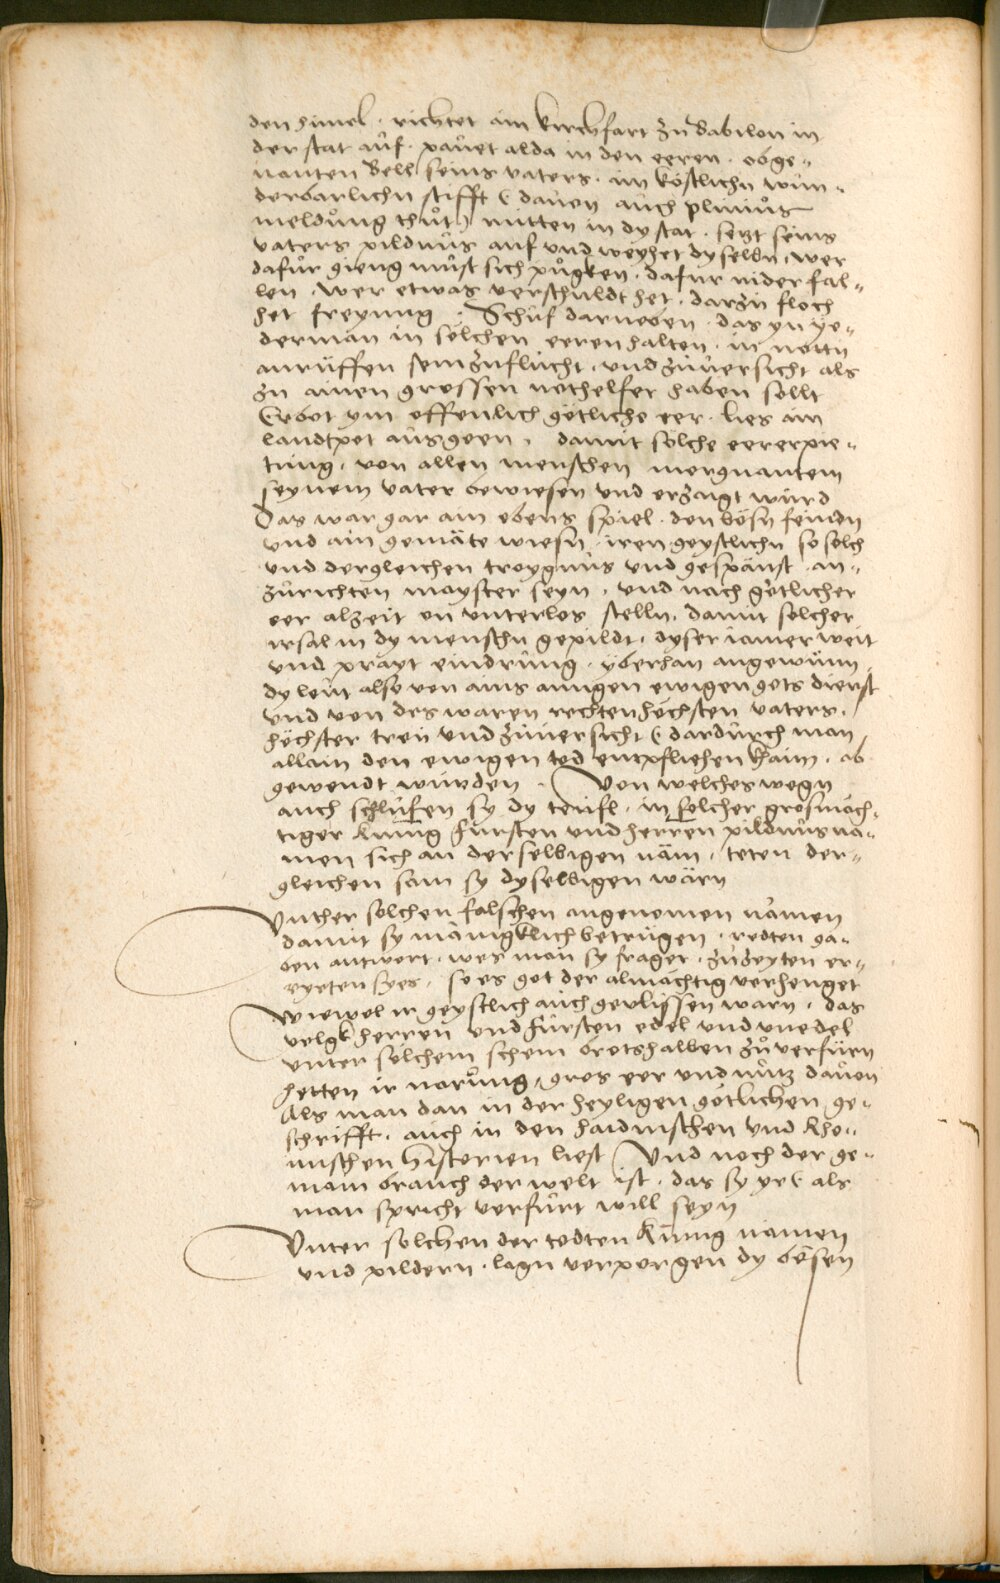 den himel · richtet ain kirchfart zu Babilon in
der stat auf · pauet alda in den eeren · obge„
nanten Bell seins vaters · ain köstlichn wun„
derbarlichn stifft ( dauen auch plinius
meldung thut ) mitten in dy stat · setzt seins
vaters pildnus auf und weyhet dyselbn, wer
dafur gieng must sich pugken · dafur nider fal„
len · wer etwas verschuldt het · darzu floch
het freyung · Schuf darneben · das yn ye„
derman in solchen eeren halten · in nottn
anruffen sein zuflucht · und zuversicht als
zu ainen grossen nothelfer haben sollt
Erbot ym offenlich götliche eer · lies ain
landtpot ausgeen, damit solche eererpie„
tung, von allen menschen mergnantem
seynem vater bewiesen und erzaigt wurd
Das war gar ain ebens spiel · den bösn feindn
und ain gemäte wiesn · iren geystlichn so solch
und dergleichen troygnus und gespänst · an„
zurichten mayster seyn, und nach götlicher
eer alzeit on unterlos stelln, damit solcher
irsal in dy menschn gepildt, dyser iamer weit
und prayt eindrung, yberhan angewunn
dy leut also von ains ainigen ewigen gots dienst
und von des waren rechten höchsten vaters,
höchster treu und zuversicht ( dardurch man
allain den ewigen tod entpfliehen khain, ab
gewendt wurden · Von welches wegn
auch schlufen sy dy teufl, in solcher grosmäch„
tiger kunig fursten und herren pildnus na„
men sich an derselbigen näm, teten der„
gleichen sam sy dyselbigen wärn
Unther solchen falschen angenomen namen
damit sy mänigklich betrugen, redten ga„
ben antwort, wes man sy fraget, zuzeyten er„
ryeten syes, so es got der almächtig verhenget
Wiewol ir geystlich auch gevlissen warn, das
volgk herren und fursten edel und unedel
unter solchem schein brotshalben zu verfurn
hetten ir narung, gros eer und nutz dauon
Als man dan in der heyligen götlichen ge„
schrifft, auch in den haidnischen und Rho„
mischen historien liest Und noch der ge„
main brauch der welt ist, das sy ye ( als
man spricht verfurt will seyn
Unter solchen der todten kunig namen
und pildern, lagn verporgen dy bösen